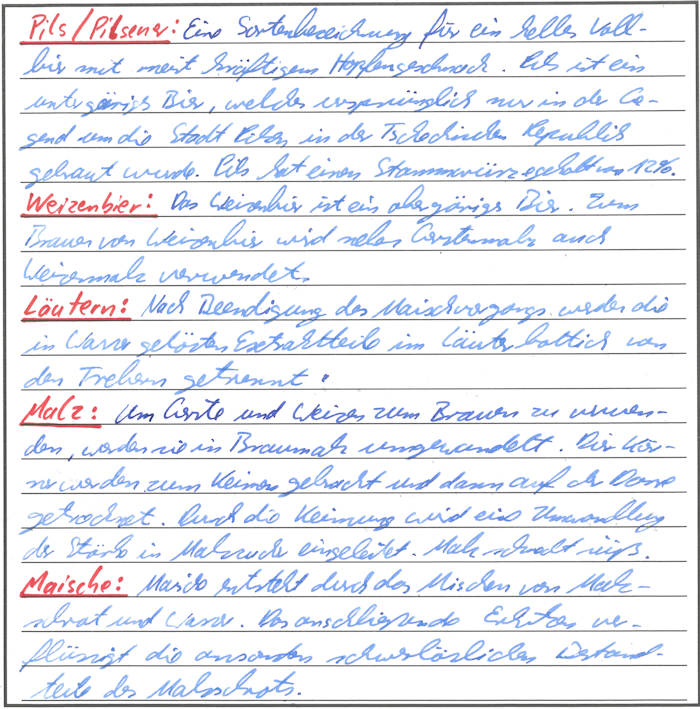 Pils/Pilsener: Eine Sortenbezeichnung für ein helles Voll-
bier mit meist kräftigem Hopfengeschmack. Pils ist ein
untergäriges Bier, welches ursprünglich nur in der Ge-
gend um die Stadt Pilsen in der Tschechischen Republik
gebraut wurde. Pils hat einen Stammwürzegehalt von 12%.
Weizenbier: Das Weizenbier ist ein obergäriges Bier. Zum
Brauen von Weizenbier wird neben Gerstenmalz auch
Weizenmalz verwendet.
Läutern: Nach Beendigung des Maischvorgangs werden die
in Wasser gelösten Extraktteile im Läuterbottich von
den Trebern getrennt.
Malz: Um Gerste und Weizen zum Brauen zu verwen-
den, werden sie in Braumalz umgewandelt. Die Kör-
ner werden zum Keimen gebracht und dann auf der Darre
getrocknet. Durch die Keimung wird eine Umwandlung
der Stärke in Malzzucker eingeleitet. Malz schmeckt süß.
Maische: Maische entsteht durch das Mischen von Malz-
schrot und Wasser. Das anschließende Erhitzen ver-
flüssigt die ansonsten schwerlöslichen Bestand-
teile des Malzschrots.